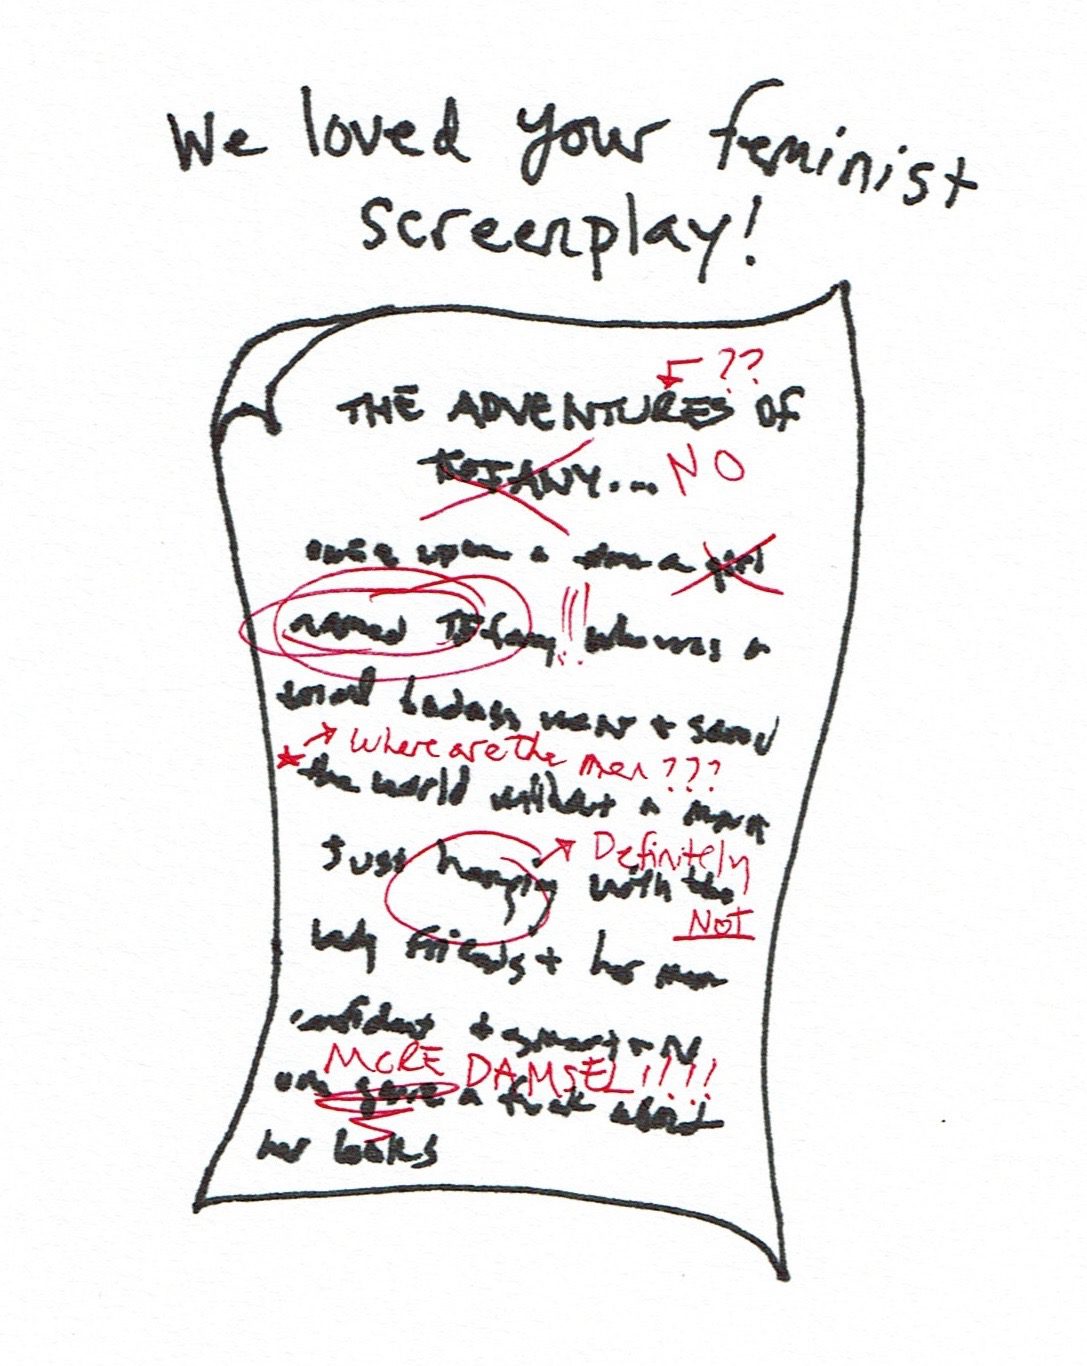 We loved your feminist
screenplay!
??
THE ADVENTURES OF
NO
once upon a time a girl
named Tifany !!! who was a
total badass went + saved
where are the men???
the world without a man
Just hanging with the
Definitely
NOT
lady friends + her man
confidant + smart + no
MORE DAMSEL!!!!
one gave a fuck about
her looks